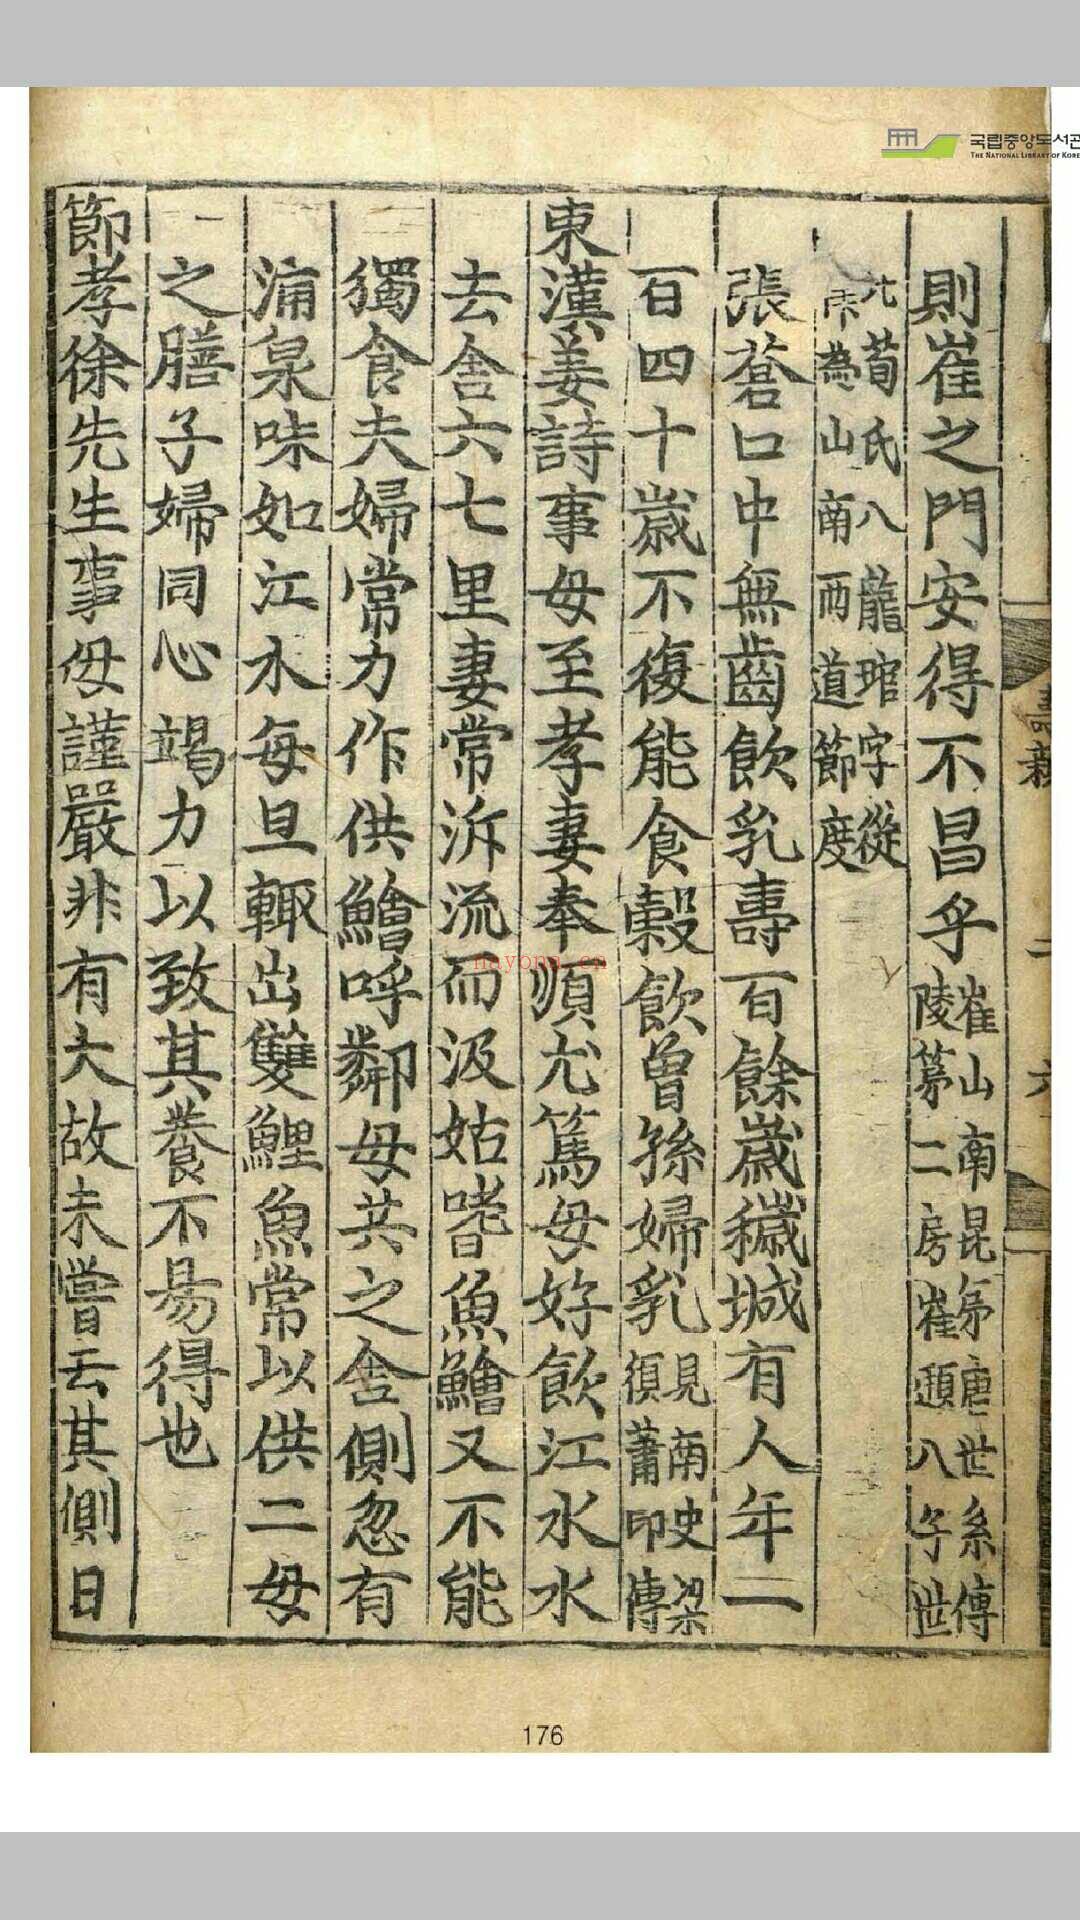 국립중앙도서관
THE NATIONAL LIBRARY OF KORE
則崔之門安得不昌乎崔山南昆弟唐世系傳
陵第二房崔頲八子世
比荀氏八龍琯字從
爲山南西道節度
張蒼口中無齒飲乳壽百餘歲穰城有人年二
百四十歲不復能食穀飲曾孫婦乳見南史梁
須蕭印傳
東漢姜詩事母至孝妻奉順尤篤母好飲江水水
去舍六七里妻常泝流而汲姑嗜魚鱠又不能
獨食夫婦常力作供鱠呼鄰母共之舍側忽有
涌泉味如江水每旦輙出雙鯉魚常以供二母
之膳子婦同心竭力以致其養不易得也
節孝徐先生事母謹嚴非有大故未嘗去其側日
壽親
二
六
nayona.cn
176